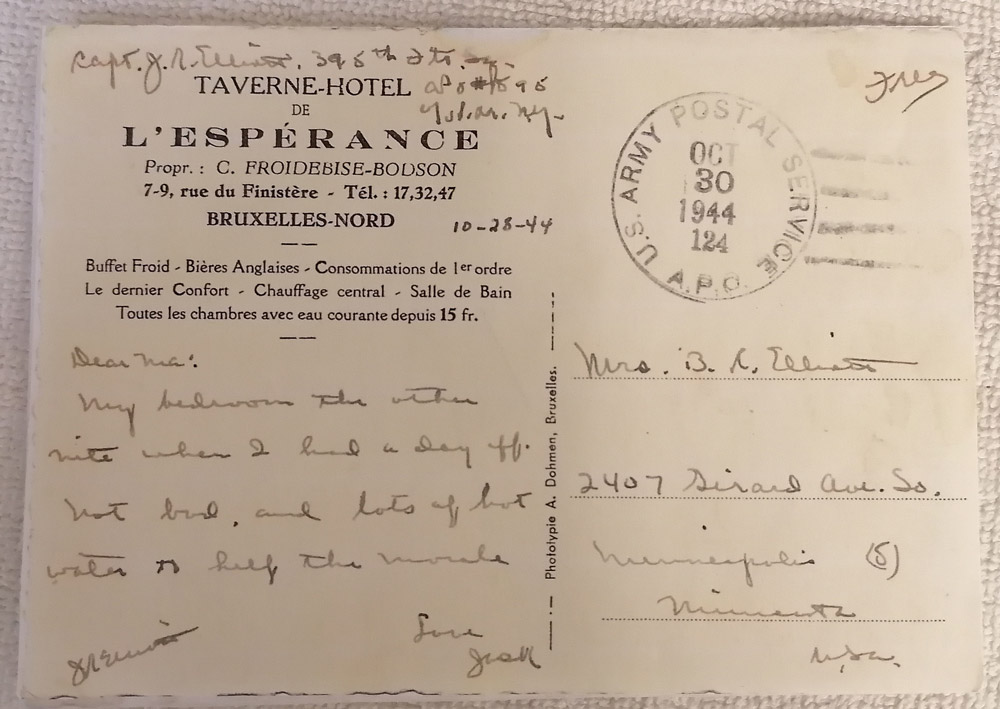 Capt. J. R. Elliott, 395th Ftr. Sq.
TAVERNE-HOTEL APO #595
DE
L'ESPÉRANCE
Propr. : C. FROIDEBISE-BODSON
7-9, rue du Finistère - Tél. : 17,32,47
BRUXELLES-NORD 10-28-44
Buffet Froid - Bières Anglaises - Consommations de 1er ordre
Le dernier Confort - Chauffage central - Salle de Bain
Toutes les chambres avec eau courante depuis 15 fr.
Dear Ma:
My bedroom the other
nite when I had a day off.
Not bad, and lots of hot
water to help the morale
Love
Jack
JRElliott
Phototypie A. Dohmen, Bruxelles.
Free
U.S. ARMY POSTAL SERVICE
OCT
30
1944
124
A.P.O.
Mrs. B. R. Elliott
2407 Girard Ave. So.
Minneapolis (5)
Minnesota
USA.